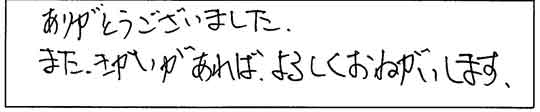 ありがとうございました.
また.きかいがあれば.よろしくおねがいします、